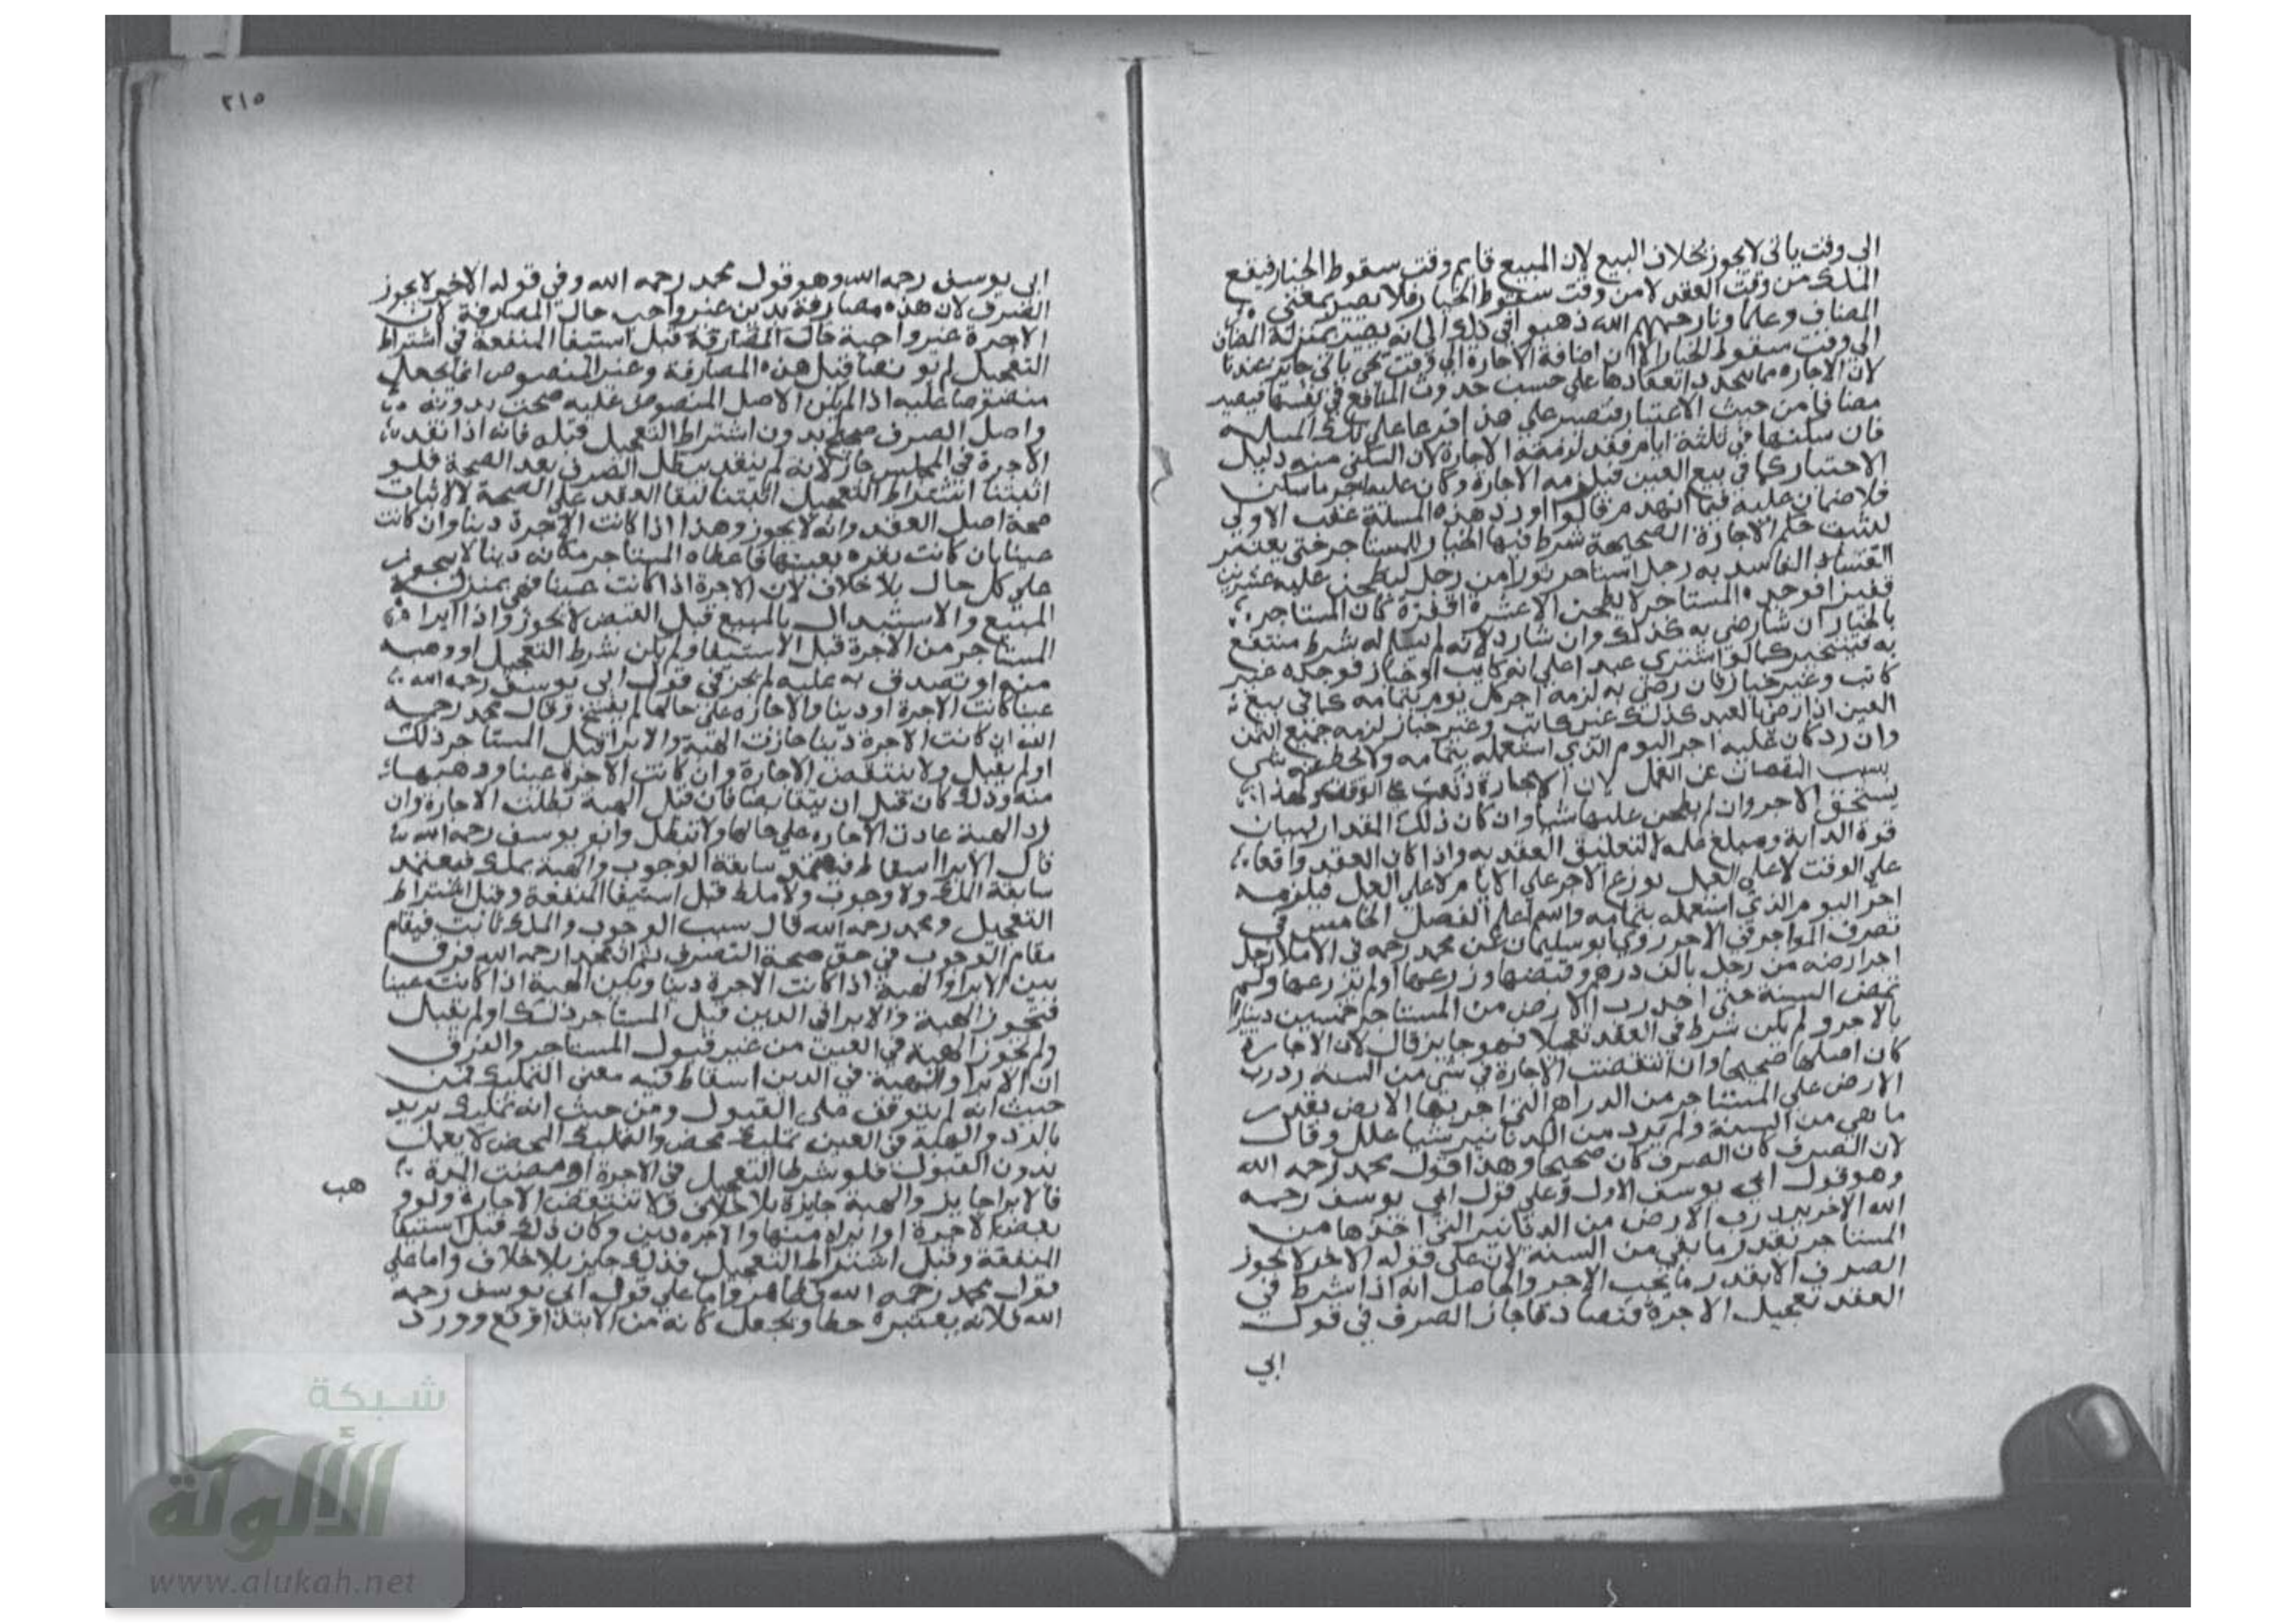 الى وقت ياتى لا يجوز بخلاف البيع لان المبيع قايم وقت سقوط الخيار فيقع
الملك من وقت العقد لا من وقت سقوط الخيار فلا يصير بمعنى
المضاف وعلماونا رحمهم الله ذهبوا فى ذلك الى انه يصير بمنزلة المضاف
الى وقت سقوط الخيار الا ان اضافة الاجارة الى وقت ياتى جايز عندنا
لان الاجاره مما يتجدد انعقادها على حسب حدوث المنافع فى نفسها فيصير
مضافا من حيث الاعتبار فتصير على هذا فرعا على تلك المسلة
فان سكنها فى ثلثة ايام فقد لزمته الاجارة لان السكنى منه دليل
الاختيار كما فى بيع العين فيلزمه الاجارة وكان عليه اجر ما سكن
فلا ضمان عليه فيما انهدم قالوا اورد هذه المسلة عقب الاولى
لتثبت حكم الاجارة الصحيحة شرط فيها الخيار للمستاجر حتى يعتبر
الفاسد به رجل استاجر ثورا من رجل ليطحن عليه عشرين
قفيزا فوجده المستاجر لا يطحن الا عشرة اقفزة كان المستاجر
بالخيار ان شا رضى به كذلك وان شا رد لانه لم يسلم له شرط منتفع
به فيتخير كما لو اشترى عبدا على انه كاتب او خباز فوجده غير
كاتب وغير خباز فان رضى به لزمه اجر كل يوم بتمامه كما فى بيع
العين اذا رضى بالعبد كذلك غير كاتب وغير خباز لزمه جميع الثمن
وان رد كان عليه اجر اليوم الذى استعمله بتمامه ولا يحط عنه شى
بسبب النقصان عن العمل لان الاجارة وقعت على الوقت ولهذا
يستحق الاجر وان لم يطحن عليها شيا وان كان ذلك المقدار لبيان
قوة الدابة ومبلغ عمله لا لتعليق العقد به واذا كان العقد واقعا
على الوقت لا على العمل يوزع الاجر على الايام لا على العمل فيلزمه
اجر اليوم الذى استعمله بتمامه والله اعلم الفصل الخامس فى
تصرف المواجر فى الاجر روى ابو سليمان عن محمد رحمه فى الاملا رجل
اجر ارضه من رجل بالف درهم وقبضها وزرعها او لم يزرعها ولم
تمض السنة حتى اخذ رب الارض من المستاجر خمسين دينارا
بالاجر ولم يكن شرط فى العقد تعجيلا فهو جايز قال لان الاجارة
كان اصلها صحيحا وان انتقضت الاجارة فى شى من السنة رد رب
الارض على المستاجر من الدراهم التى اجر بها الارض بقدر
ما بقى من السنة ولم يرد من الدنانير شيا علل وقال
لان الصرف كان صحيحا وهذا قول محمد رحمه الله
وهو قول ابى يوسف الاول وعلى قول ابى يوسف رحمه
الله الاخر يرد رب الارض من الدنانير التى اخذها من
المستاجر بقدر ما بقى من السنة لان على قوله الاخر لا يجوز
الصرف الا بقدر ما يجب الاجر والحاصل انه اذا شرط فى
العقد تعجيل الاجرة فتصارفا جاز الصرف فى قول
ابي
٢١٥
ابى يوسف رحمه الله وهو قول محمد رحمه الله وفى قوله الاخير لا يجوز
الصرف لان هذه مصارفة بدين غير واجب حال المصارفة لان
الاجرة غير واجبة حال المصارفة قبل استيفا المنفعة فى اشتراط
التعجيل لم يوجد نصا قبل هذه المصارفة وغير المنصوص انما يجعل
منصوصا عليه اذا لم يكن الاصل المنصوص عليه صحت بدونه
واصل الصرف صحيح بدون اشتراط التعجيل قبله فانه اذا نقد
الاجرة فى المجلس جاز لانه لم ينقد يبطل الصرف بعد الصحة فلو
اثبتنا اشتراط التعجيل اثبتنا لبقا العقد على الصحة لا لاثبات
صحة اصل العقد وانه لا يجوز وهذا اذا كانت الاجرة دينا وان كانت
عينا بان كانت نقره بعينها فاعطاه المستاجر مكانه دينا لا يجوز
على كل حال بلا خلاف لان الاجرة اذا كانت عينا فهى بمنزلة
المبيع والاستبدال بالمبيع قبل القبض لا يجوز واذا ابرا
المستاجر من الاجرة قبل الاستيفا ولم يكن شرط التعجيل او وهبه
منه او تصدق به عليه لم يجز فى قول ابى يوسف رحمه الله
عينا كانت الاجرة او دينا والاجاره على حالها لم يفسخ وقال محمد رحمه
الله ان كانت الاجرة دينا جازت الهبة والابرا قبل المستاجر ذلك
او لم يقبل ولا ينتقض الاجارة وان كانت الاجرة عينا ووهبها
منه وذلك كان قبل ان يتقابضا فان قبل الهبة بطلت الاجارة وان
رد الهبة عادت الاجاره على حالها ولا تبطل وابو يوسف رحمه الله
قال الابرا اسقاط فيعتمد سابقة الوجوب والهبة تملك فيعتمد
سابقة الملك ولا وجوب ولا ملك قبل استيفا المنفعة وقبل اشتراط
التعجيل ومحمد رحمه الله قال سبب الوجوب والملك ثابت فيقام
مقام الوجوب فى حق صحة التصرف ثم ان محمدا رحمه الله فرق
بين الابرا والهبة اذا كانت الاجرة دينا وبين الهبة اذا كانت عينا
فتجوز الهبة والابرا فى الدين قبل المستاجر ذلك او لم يقبل
ولم تجوز الهبة فى العين من غير قبول المستاجر والفرق
ان الابرا والهبة فى الدين اسقاط فيه معنى التمليك فمن
حيث انه لم يتوقف على القبول ومن حيث انه تمليك يرتد
بالرد والهبة فى العين تمليك محض والتمليك المحض لا يعمل
بدون القبول فلو شرطا التعجيل فى الاجرة او مضت المدة
فالابرا جايز والهبة جايزة بلا خلاف ولا تنتقض الاجارة ولو وهب
بعض الاجرة او ابراه منها والاجره دين وكان ذلك قبل استيفا
المنفعة وقبل اشتراط التعجيل فذلك جايز بلا خلاف واما على
قول محمد رحمه الله فظاهر واما على قول ابى يوسف رحمه
الله فلانه يعتبره حطا ويجعل كانه من الابتدا وقع وورد